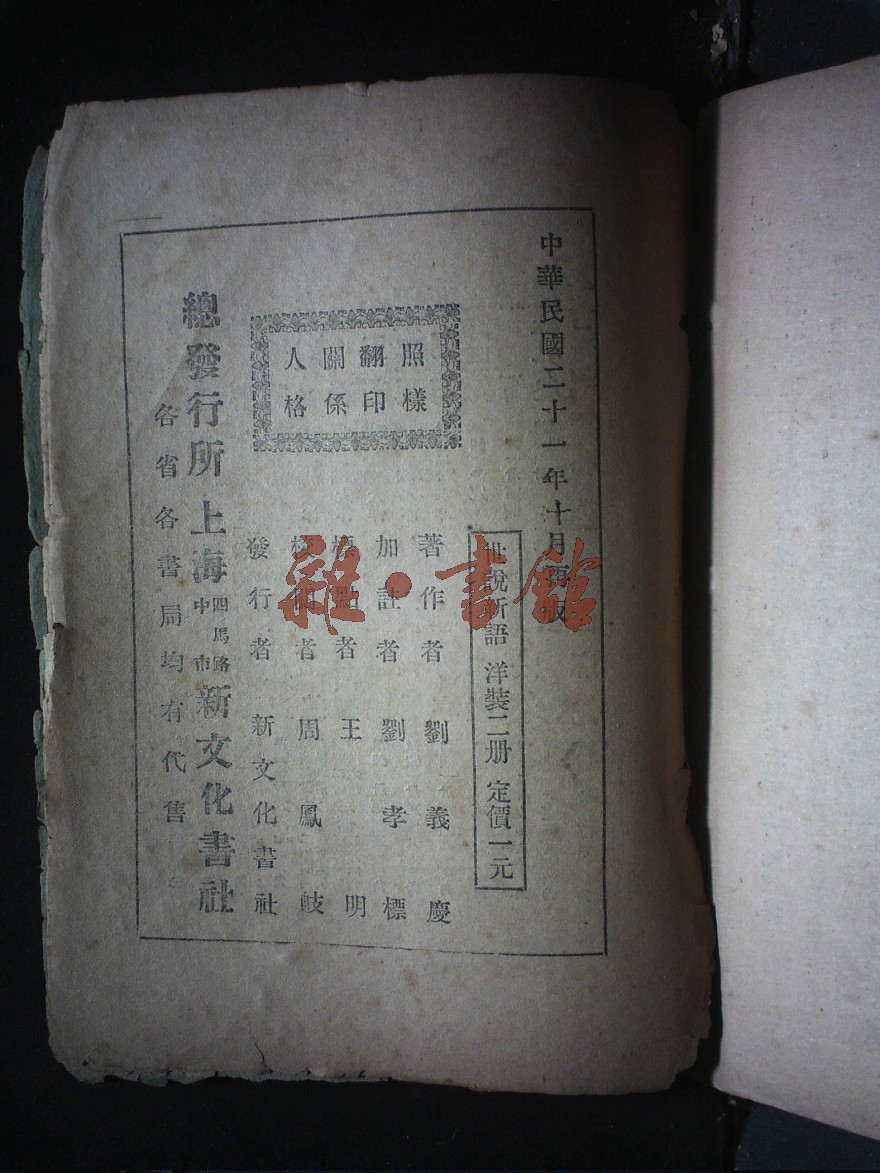 中華民國二十一年十月再版
世說新語 洋裝二册 定價一元
照樣
翻印
關係
人格
著作者 劉義慶
加註者 劉孝標
標點者 王明
校閱者 周鳳岐
發行者 新文化書社
總發行所 上海四馬路中市新文化書社
各省各書局均有代售
雜·書館